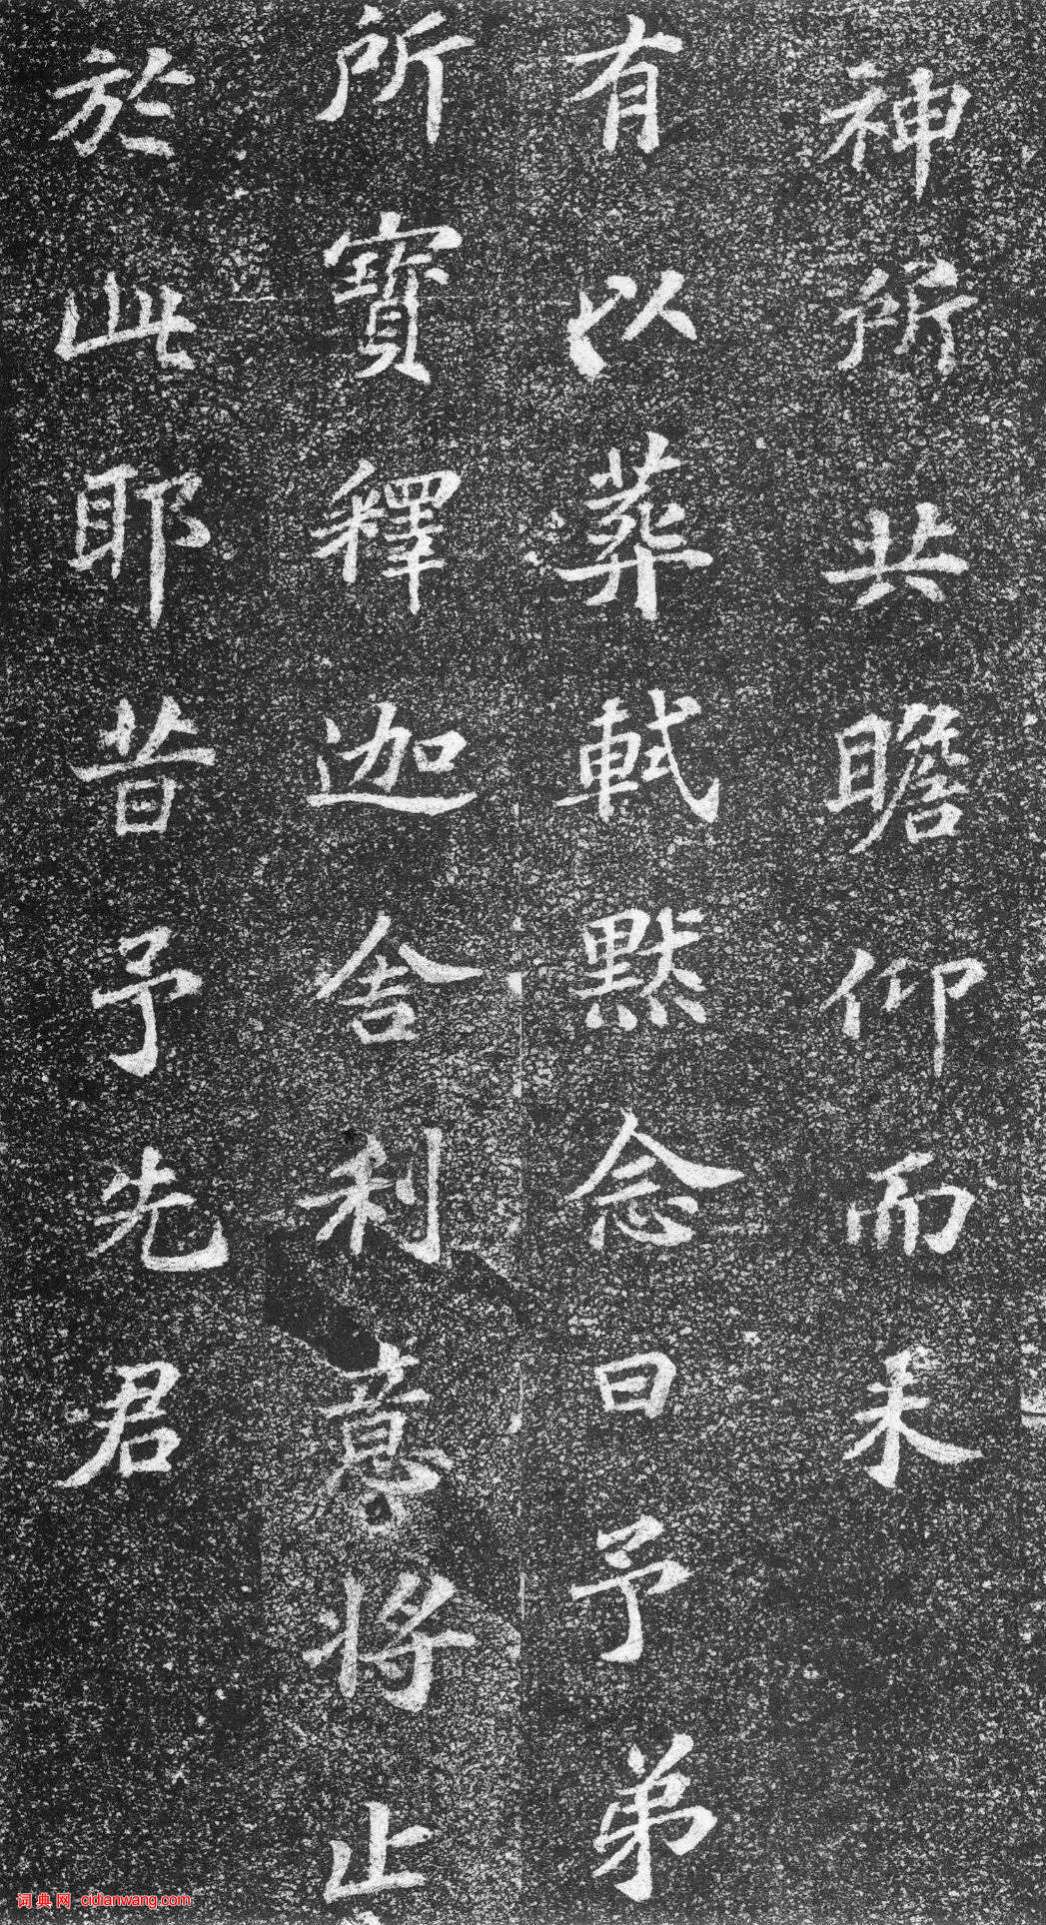 神所共瞻仰而未
有以葬軾默念曰予弟
所寶釋迦舍利意將止
於此耶昔予先君
词典网 cidianwang.com